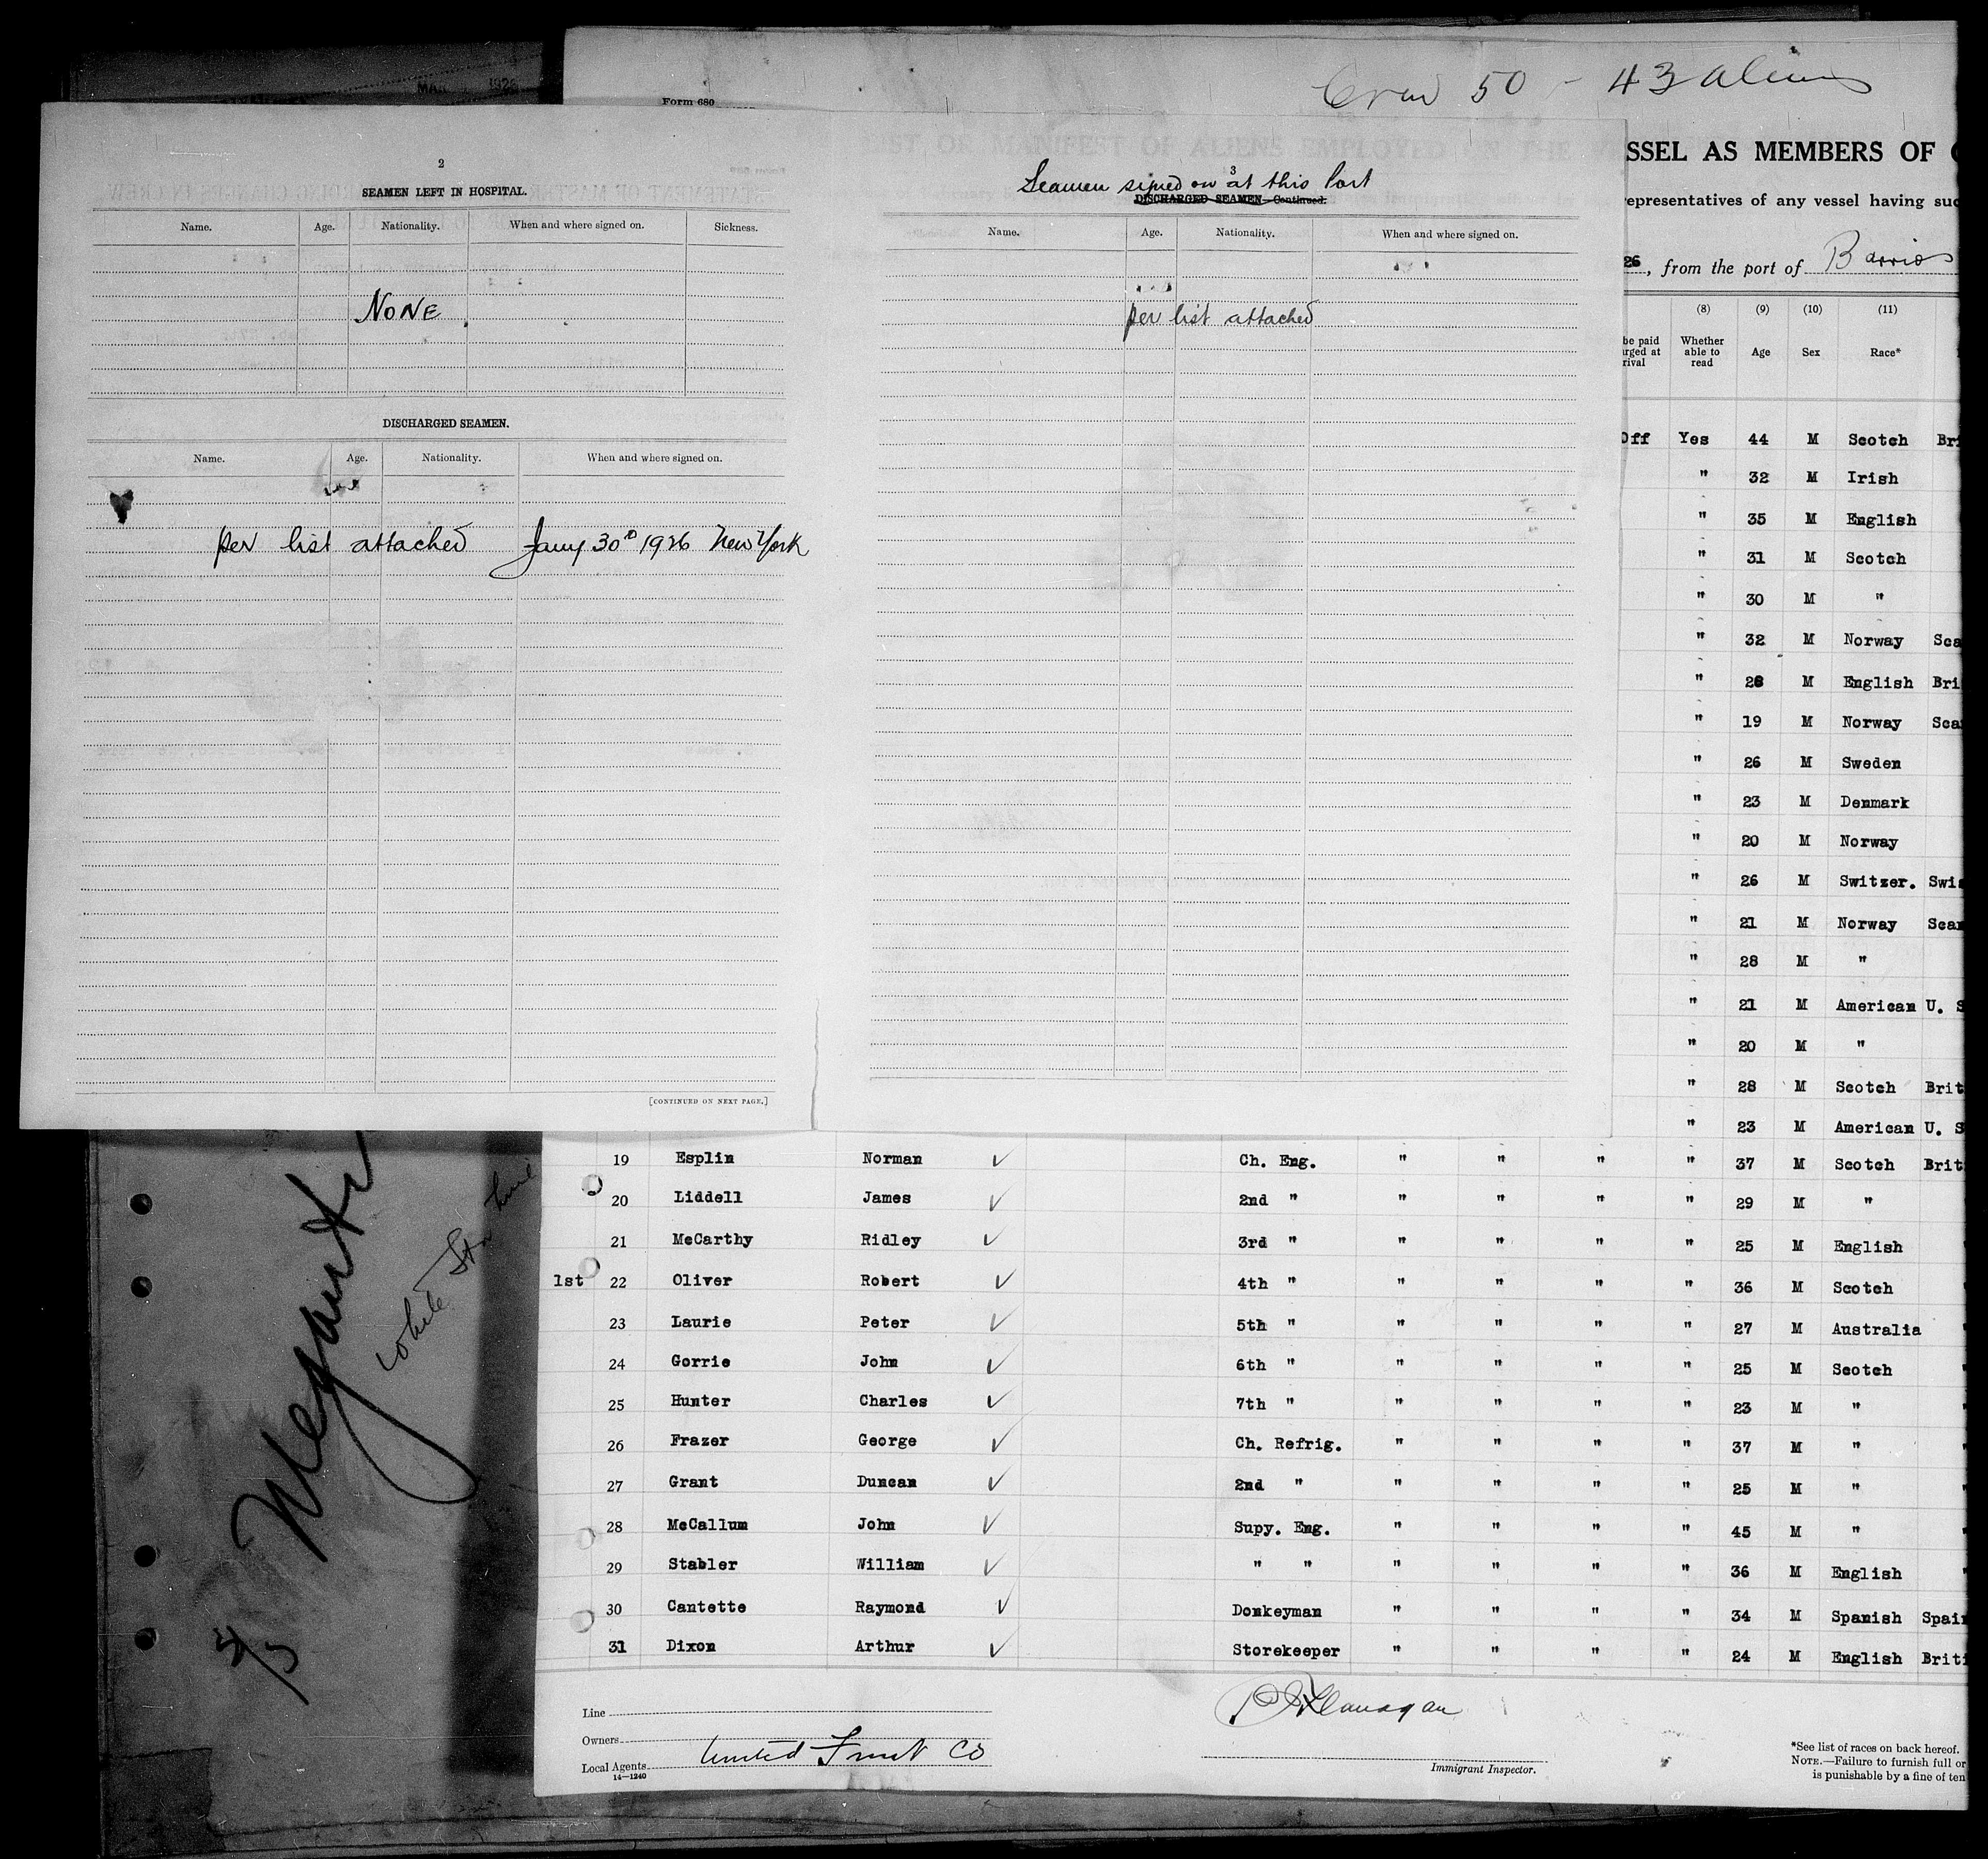 MAR 1926
Form 680
Crew 50 - 43 aliens
SSEL AS MEMBERS OF
representatives of any vessel having suc
26, from the port of Barrios
2
SEAMEN LEFT IN HOSPITAL.
Name. Age. Nationality. When and where signed on. Sickness.
NONE
DISCHARGED SEAMEN.
Name. Age. Nationality. When and where signed on.
per list attached Jany 30th 1926 New York
[CONTINUED ON NEXT PAGE.]
3
Seamen signed on at this Port
DISCHARGED SEAMEN—Continued.
Name. Age. Nationality. When and where signed on.
per list attached
(8) (9) (10) (11)
be paid Whether
arged at able to Age Sex Race*
rival read
Off Yes 44 M Scotch Bri
" 32 M Irish
" 35 M English
" 31 M Scotch
" 30 M "
" 32 M Norway Sca
" 28 M English Bri
" 19 M Norway Sca
" 26 M Sweden
" 23 M Denmark
" 20 M Norway
" 26 M Switzer. Swi
" 21 M Norway Scan
" 28 M "
" 21 M American U. S
" 20 M "
" 28 M Scotch Brit
" 23 M American U. S
19 Esplin Norman ✓ Ch. Eng. " " " " 37 M Scotch Brit
20 Liddell James ✓ 2nd " " " " " 29 M "
21 McCarthy Ridley ✓ 3rd " " " " " 25 M English "
1st 22 Oliver Robert ✓ 4th " " " " " 36 M Scotch "
23 Laurie Peter ✓ 5th " " " " " 27 M Australia "
24 Gorrie John ✓ 6th " " " " " 25 M Scotch "
25 Hunter Charles ✓ 7th " " " " " 23 M " "
26 Frazer George ✓ Ch. Refrig. " " " " 37 M " "
27 Grant Duncan ✓ 2nd " " " " " 25 M " "
28 McCallum John ✓ Supy. Eng. " " " " 45 M " "
29 Stabler William ✓ " " " " " " 36 M English "
30 Cantette Raymond ✓ Donkeyman " " " " 34 M Spanish Spai
31 Dixon Arthur ✓ Storekeeper " " " " 24 M English Briti
Line
Owners
Local Agents United Fruit Co
14—1240
Flanagan
Immigrant Inspector.
*See list of races on back hereof.
NOTE.—Failure to furnish full or
is punishable by a fine of ten
S/S Megantic
White Star Line